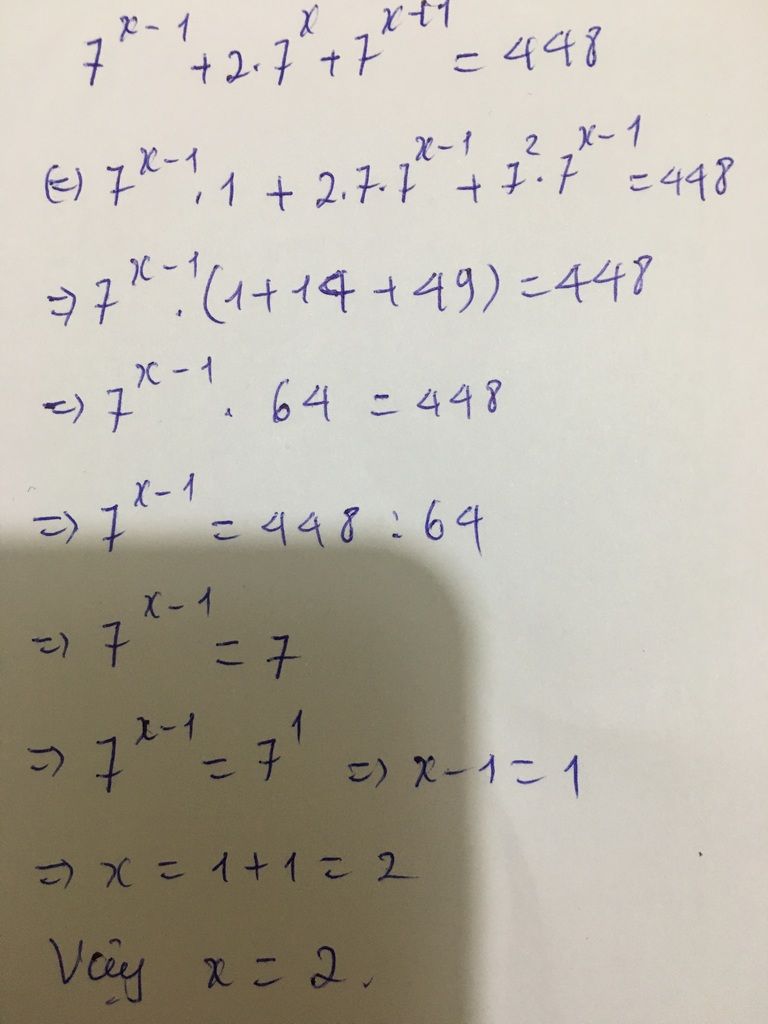 7^{x-1} + 2.7^{x} + 7^{x+1} = 448
(=) 7^{x-1}.1 + 2.7.7^{x-1} + 7^{2}.7^{x-1} = 448
=) 7^{x-1}.(1+14+49) = 448
=) 7^{x-1}. 64 = 448
=) 7^{x-1} = 448 : 64
=) 7^{x-1} = 7
=) 7^{x-1} = 7^{1} =) x-1 = 1
=) x = 1+1 = 2
Vậy x = 2.